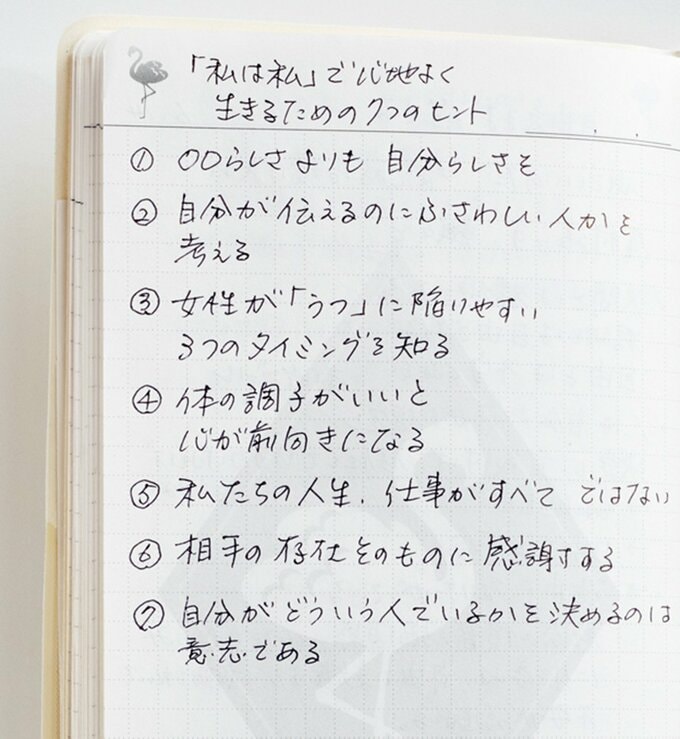 「私は私」で心地よく
生きるための7つのヒント
① ○○らしさよりも 自分らしさを
② 自分が伝えるのにふさわしい人かを
考える
③ 女性が「うつ」に陥りやすい
3つのタイミングを知る
④ 体の調子がいいと
心が前向きになる
⑤ 私たちの人生、仕事がすべて ではない
⑥ 相手の存在そのものに感謝する
⑦ 自分がどういう人でいるかを決めるのは
意志である